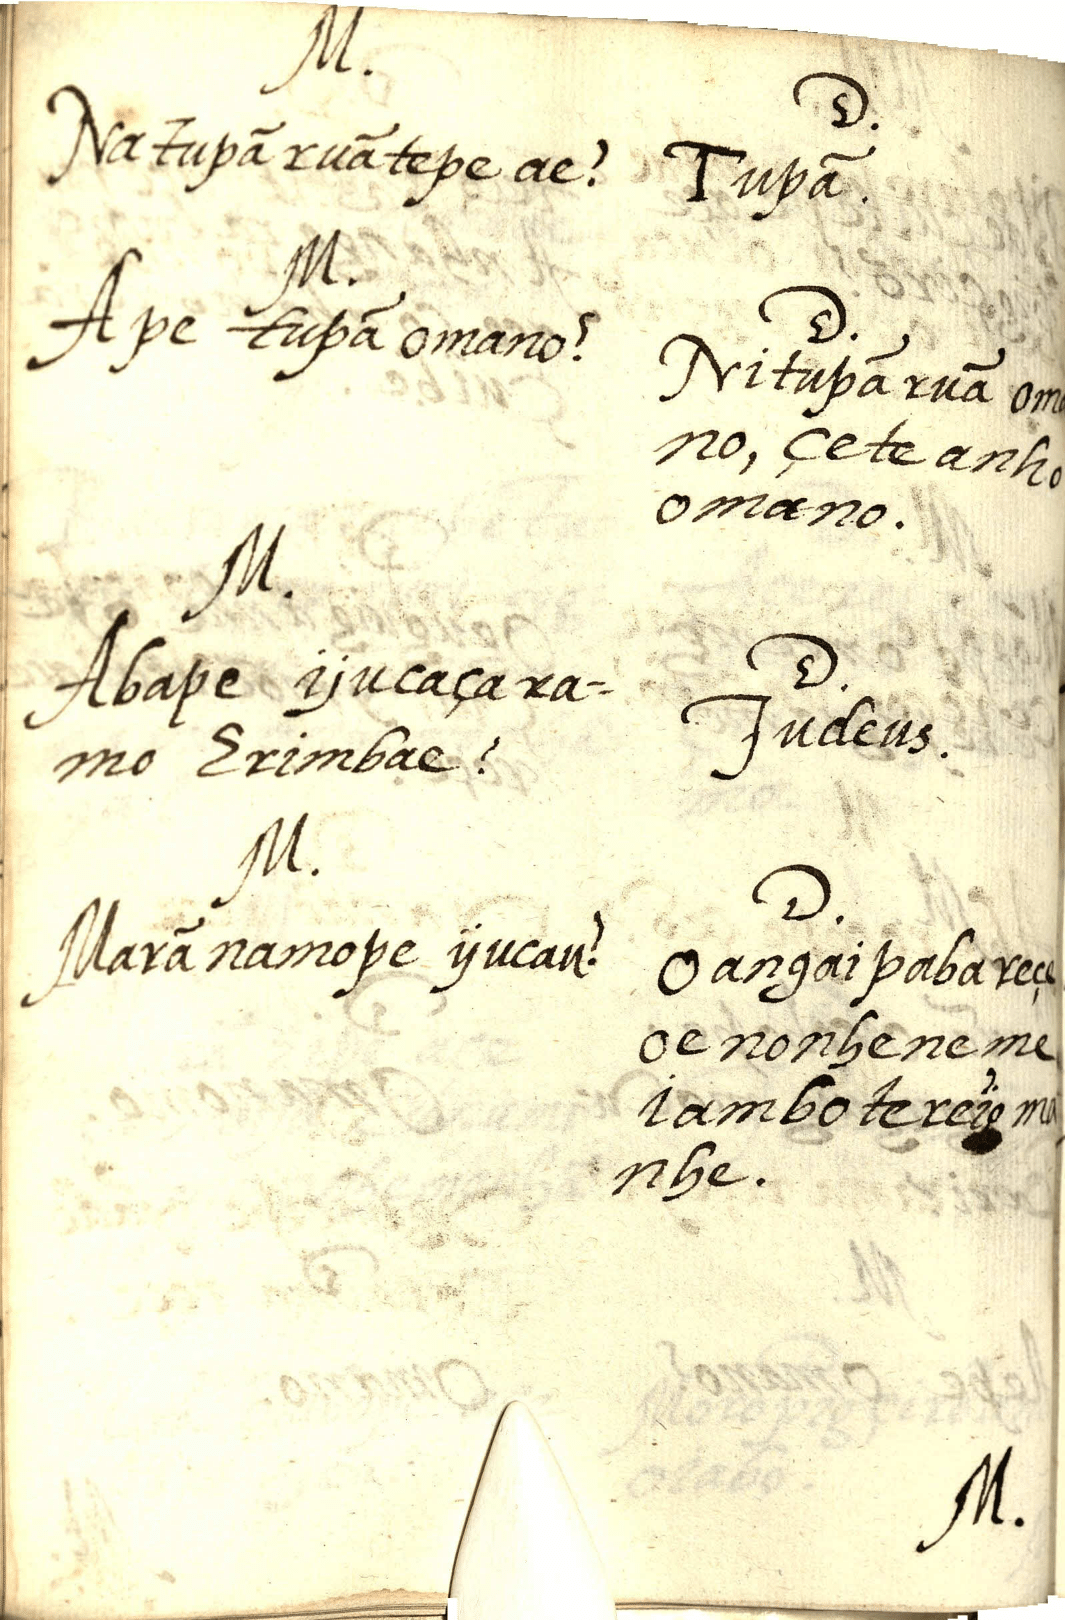 M.
Na tupã ruã tepe ae?
D.
Tupã.
M.
Ape tupã omano?
D.
Ni tupã ruã oma
no, çete anho
omano.
M.
Abape ijucaçara-
mo Erimbae?
D.
Judeus.
M.
Marã namope ijucau?
D.
O angaipaba reçe
oe nonhe neme
iambotereig ma
nhe.
M.